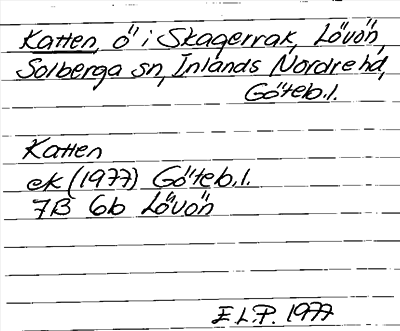 Katten, ö i Skagerrak, Lövön,
Solberga sn, Inlands Nordre hd,
Göteb.l.
Katten
ek (1977) Göteb.l.
7B 6b Lövön
E.L.P. 1977